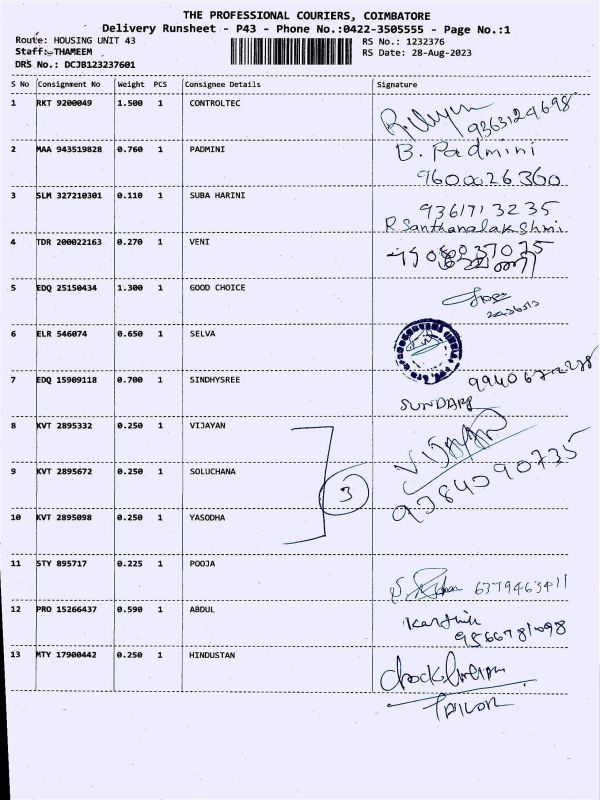 THE PROFESSIONAL COURIERS, COIMBATORE
Delivery Runsheet - P43 - Phone No.:0422-3505555 - Page No.:1
Route: HOUSING UNIT 43
RS No.: 1232376
Staff:-THAMEEM
RS Date: 28-Aug-2023
DRS No.: DCJB123237601
S No Consignment No Weight PCS Consignee Details Signature
1 RKT 9200049 1.500 1 CONTROLTEC
9363124698
2 MAA 943519828 0.760 1 PADMINI B. Padmini
9600026360
3 SLM 327210301 0.110 1 SUBA HARINI 9361713235
R Santhanalakshmi
4 TDR 200022163 0.270 1 VENI
5 EDQ 25150434 1.300 1 GOOD CHOICE
6 ELR 546074 0.650 1 SELVA
7 EDQ 15909118 0.700 1 SINDHYSREE
8 KVT 2895332 0.250 1 VIJAYAN VIJAYAN
9 KVT 2895672 0.250 1 SOLUCHANA 3
10 KVT 2895098 0.250 1 YASODHA
11 STY 895717 0.225 1 POOJA 6379463411
12 PRO 15266437 0.590 1 ABDUL Karthik
9566781098
13 MTY 17900442 0.250 1 HINDUSTAN
TAILOR